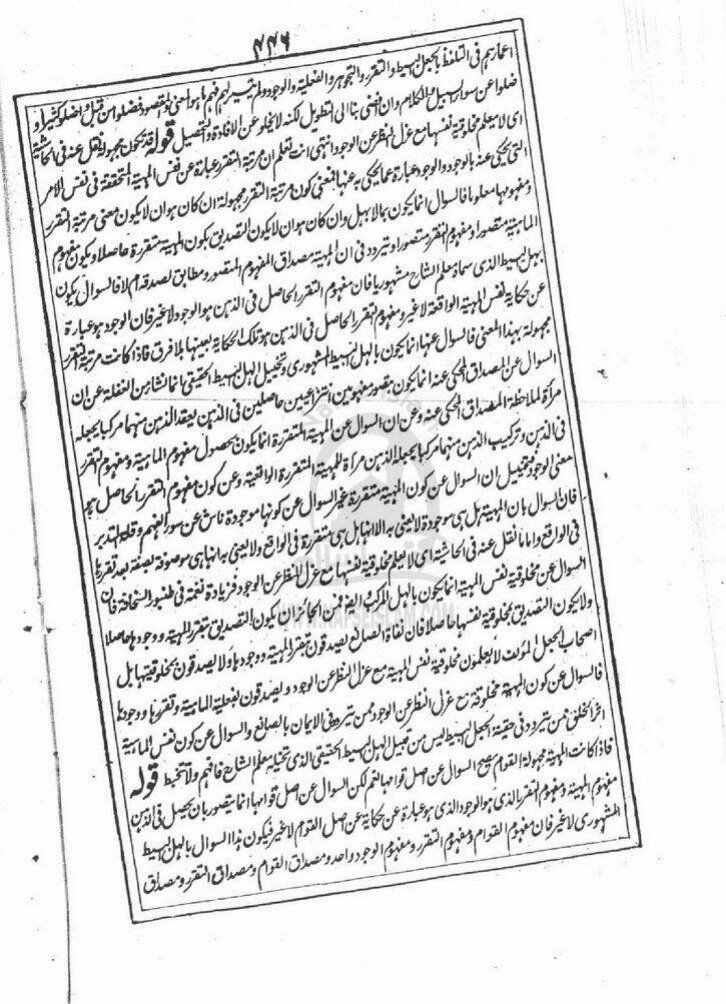 ۴۴۶
اعمارهم فى التلفظ بالجعل البسيط والتقرر والتجوهر والفعلية والوجود ولم يتيسر لهم فهم ما هو المعنى والمقصود فضلوا من قبل واضلوا كثيرا و
ضلوا عن سواء سبيل الكلام وان افضى بنا الى التطويل لكنه لا يخلو عن الافادة والتحصيل قوله قد تكون مجهولة نقل عنه فى الحاشية
اى لا يعلم مخلوقية نفسها مع عزل النظر عن الوجود انتهى انت تعلم ان مرتبة التقرر عبارة عن نفس المهية المتحققة فى نفس الامر
التى يحكى عنه بالوجود والوجود عبارة عما يحكى به عنها فمعنى كون مرتبة التقرر مجهولة ان كان هو ان لا يكون معنى مرتبة التقرر
ومفهومها معلوما فالسوال انما يكون بما لا بهل وان كان هو ان لا يكون التصديق بكون المهية متقررة حاصلا ويكون مفهوم
الماهية متصورا ومفهوم التقرر متصورا ويتردد فى ان المهية مصداق المفهوم المتصور ومطابق لصدقه ام لا فالسوال يكون
بهل البسيط الذى سماه معلم الشارح مشهوريا فان مفهوم التقرر الحاصل فى الذهن هو الوجود لا غير فان الوجود هو عبارة
عن حكاية نفس المهية الواقعة لا غير ومفهوم التقرر الحاصل فى الذهن هو تلك الحكاية بعينها بلا فرق فاذا كانت مرتبة التقرر
مجهولة بهذا المعنى فالسوال عنها انما يكون بالهل البسيط المشهورى وتخييل الهل البسيط الحقيقى انما نشا من الغفلة عن ان
السوال عن المصداق المحكى عنه انما يكون بتصور مفهومين انتزاعيين حاصلين فى الذهن يعقد الذهن منهما مركبا يجعله
مرآة لملاحظة المصداق المحكى عنه وعن ان السوال عن المهية المتقررة انما يكون بحصول مفهوم الماهية ومفهوم التقرر
فى الذهن وتركيب الذهن منهما مركبا يجعله الذهن مرآة للمهية المتقررة الواقعية وعن كون مفهوم التقرر الحاصل هو
معنى الوجود فتخييل ان السوال عن كون المهية متقررة غير السوال عن كونها موجودة ناش عن سوء الفهم وقلة التدبر
فان السوال بان المهية هل هى موجودة لا يعنى به الا انها هل هى متقررة فى الواقع ولا يعنى به انها هى موصوفة بصفة بعد تقررها
فى الواقع واما ما نقل عنه فى الحاشية اى لا يعلم مخلوقية نفسها مع عزل النظر عن الوجود فزيادة نغمة فى طنبور السخافة فان
السوال عن مخلوقية نفس المهية انما يكون بالهل المركب البتة فمن الجائز ان يكون التصديق بتقرر المهية ووجودها حاصلا
ولا يكون التصديق بمخلوقية نفسها حاصلا فان نفاة الصانع يصدقون بتقرر المهية ووجودها ولا يصدقون بمخلوقيتها بل
اصحاب الجعل المؤلف لا يعلمون مخلوقية نفس المهية مع عزل النظر عن الوجود ويصدقون لفعلية الماهية وتقررها ووجودها
فالسوال عن كون المهية مخلوقة مع عزل النظر عن الوجود ممن يتردد فى الايمان بالصانع والسوال عن كون نفس الماهية
اثر الخلق ممن يتردد فى حقيقة الجعل البسيط ليس من قبيل الهل البسيط الحقيقى الذى تخيله معلم الشارح فافهم ولا تخبط قوله
فاذا كانت المهية مجهولة القوام يصح السوال عن اصل قوامها نعم لكن السوال عن اصل قوامها انما يتصور بان يحصل فى الذهن
مفهوم المهية ومفهوم التقرر الذى هو الوجود الذى هو عبارة عن حكاية عن اصل القوام لا غير فيكون هذا السوال بالهل البسيط
المشهورى لا غير فان مفهوم القوام ومفهوم التقرر ومفهوم الوجود واحد ومصداق القوام ومصداق التقرر ومصداق
WWW.NAFSEISLAM.COM